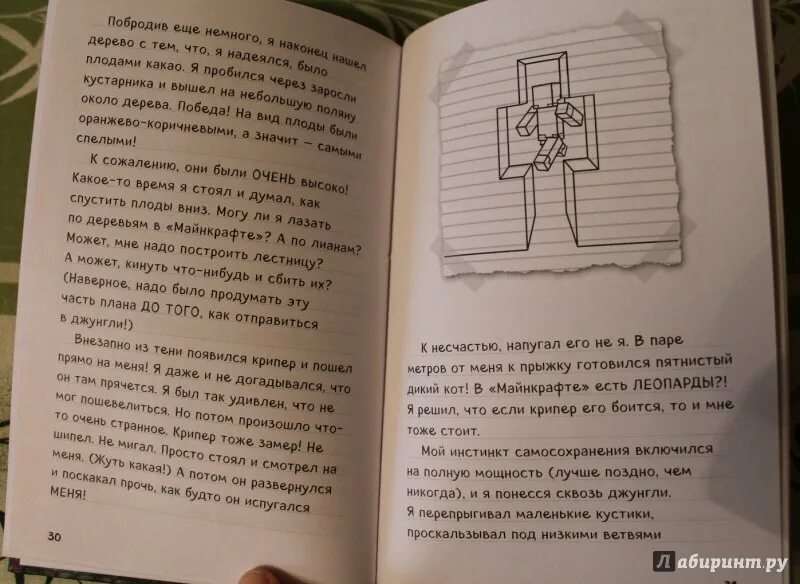 Побродив еще немного, я наконец нашел
дерево с тем, что, я надеялся, было
плодами какао. Я пробился через заросли
кустарника и вышел на небольшую поляну
около дерева. Победа! На вид плоды были
оранжево-коричневыми, а значит — самыми
спелыми!
К сожалению, они были ОЧЕНЬ высоко!
Какое-то время я стоял и думал, как
спустить плоды вниз. Могу ли я лазать
по деревьям в «Майнкрафте»? А по лианам?
Может, мне надо построить лестницу?
А может, кинуть что-нибудь и сбить их?
(Наверное, надо было продумать эту
часть плана ДО ТОГО, как отправиться
в джунгли!)
Внезапно из тени появился крипер и пошел
прямо на меня! Я даже и не догадывался, что
он там прячется. Я был так удивлен, что не
мог пошевелиться. Но потом произошло что-
то очень странное. Крипер тоже замер! Не
шипел. Не мигал. Просто стоял и смотрел на
меня. (Жуть какая!) А потом он развернулся
и поскакал прочь, как будто он испугался
МЕНЯ!
30
К несчастью, напугал его не я. В паре
метров от меня к прыжку готовился пятнистый
дикий кот! В «Майнкрафте» есть ЛЕОПАРДЫ?!
Я решил, что если крипер его боится, то и мне
тоже стоит.
Мой инстинкт самосохранения включился
на полную мощность (лучше поздно, чем
никогда), и я понесся сквозь джунгли.
Я перепрыгивал маленькие кустики,
проскальзывал под низкими ветвями
Лабиринт.ру